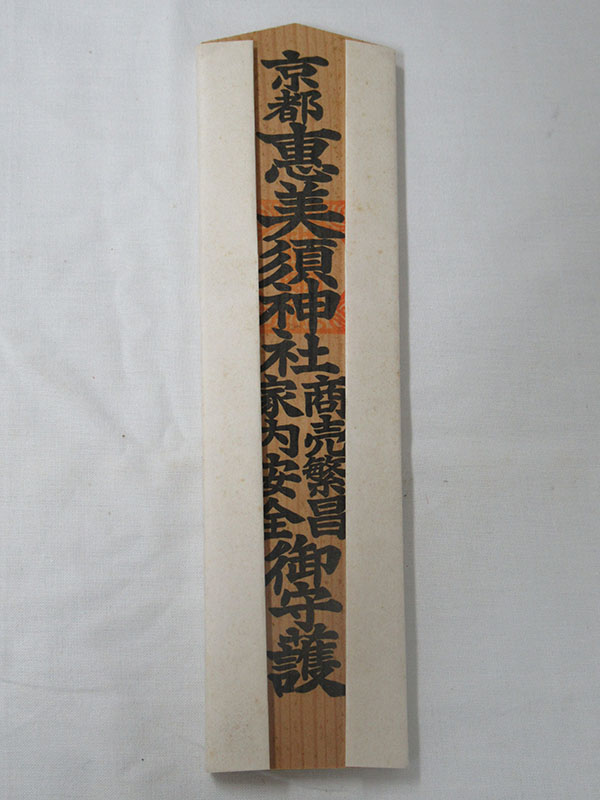 京都恵美須神社
商売繁昌
家内安全
御守護